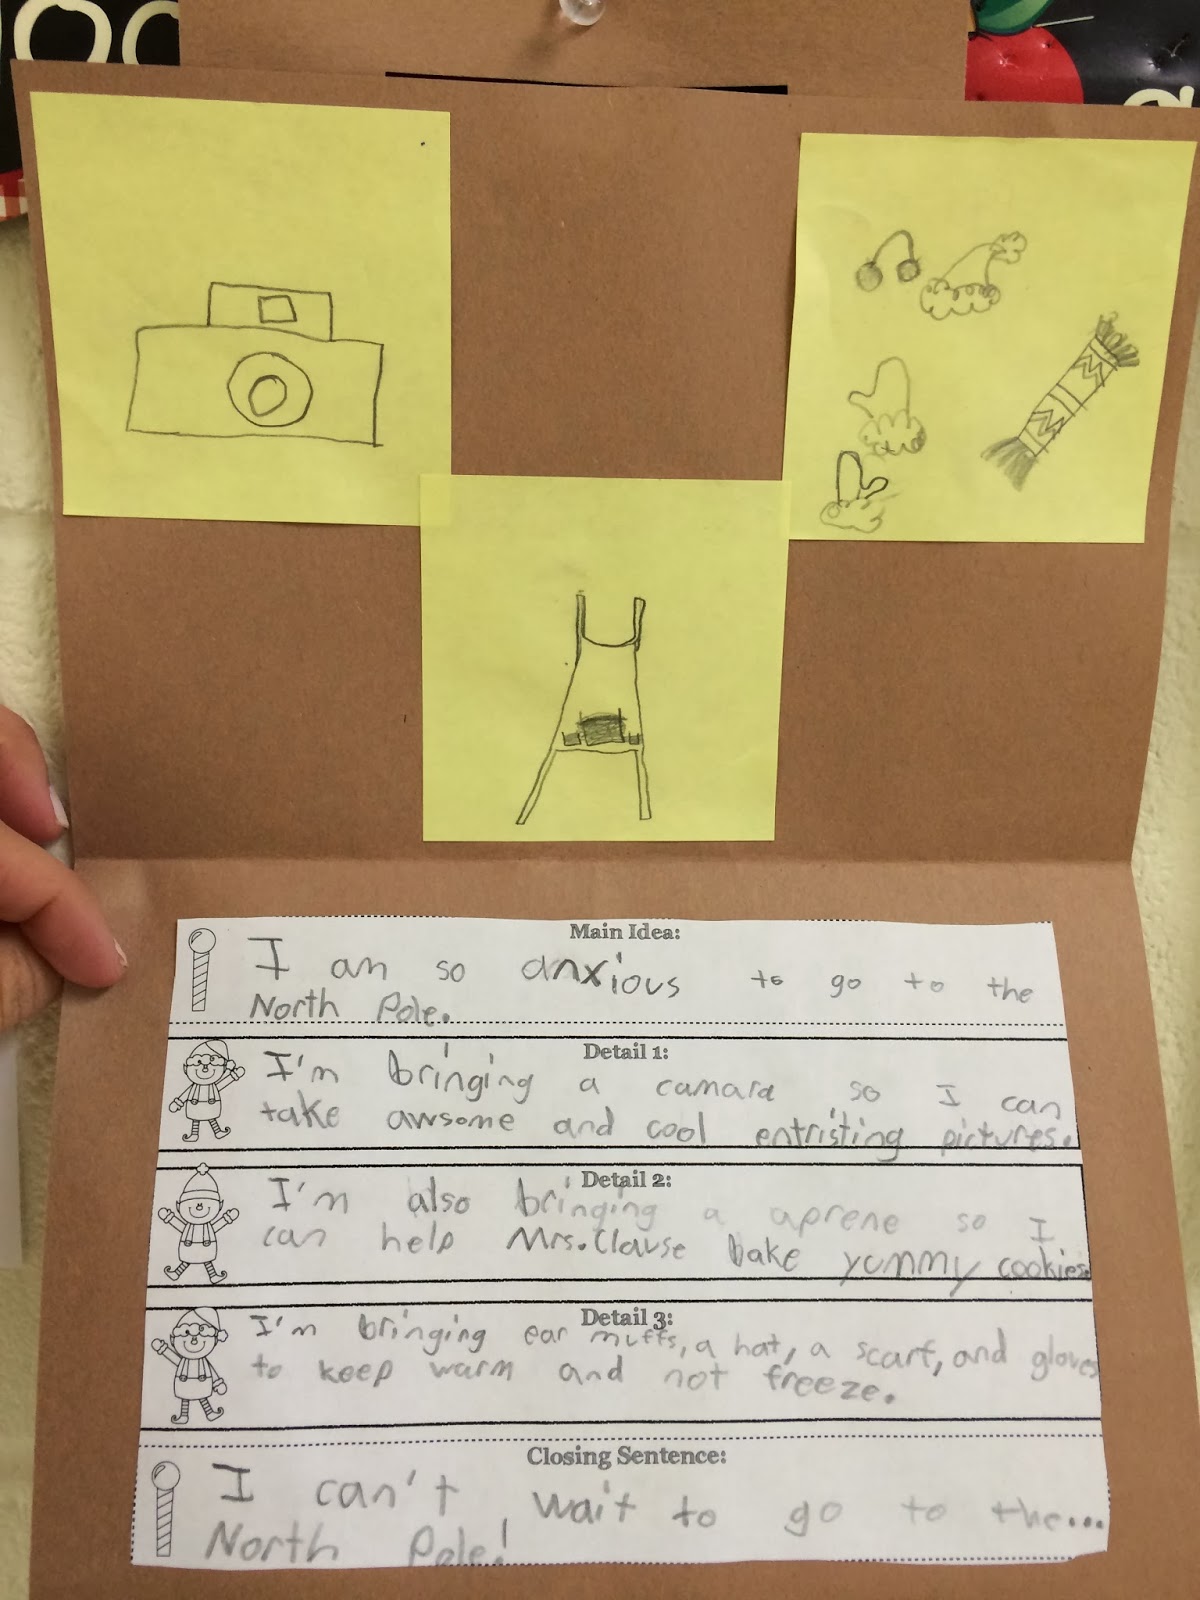 Main Idea:
I am so anxious to go to the
North Pole.
Detail 1:
I'm bringing a camara so I can
take awsome and cool entristing pictures.
Detail 2:
I'm also bringing a aprene so I
can help Mrs. Clause bake yummy cookies.
Detail 3:
I'm bringing ear muffs, a hat, a scarf, and gloves
to keep warm and not freeze.
Closing Sentence:
I can't wait to go to the...
North Pole!